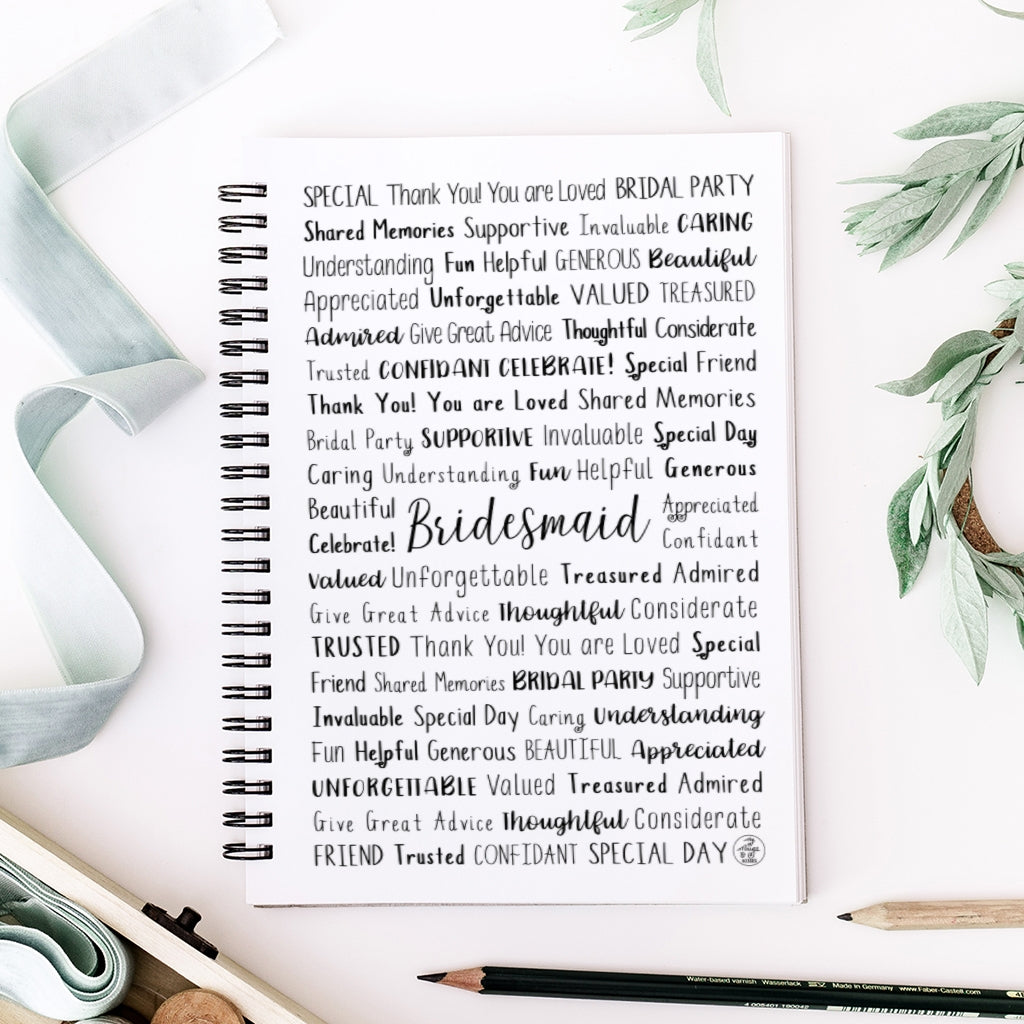 SPECIAL Thank You! You are Loved BRIDAL PARTY
Shared Memories Supportive Invaluable CARING
Understanding Fun Helpful GENEROUS Beautiful
Appreciated Unforgettable VALUED TREASURED
Admired Give Great Advice Thoughtful Considerate
Trusted CONFIDANT CELEBRATE! Special Friend
Thank You! You are Loved Shared Memories
Bridal Party SUPPORTIVE Invaluable Special Day
Caring Understanding Fun Helpful Generous
Beautiful
Celebrate!
Bridesmaid
Appreciated
Confidant
Valued Unforgettable Treasured Admired
Give Great Advice Thoughtful Considerate
TRUSTED Thank You! You are Loved Special
Friend Shared Memories BRIDAL PARTY Supportive
Invaluable Special Day Caring Understanding
Fun Helpful Generous BEAUTIFUL Appreciated
UNFORGETTABLE Valued Treasured Admired
Give Great Advice Thoughtful Considerate
FRIEND Trusted CONFIDANT SPECIAL DAY
Water-based varnish Wasserlack Made in Germany www.Faber-Castell.com
4 005401 190042